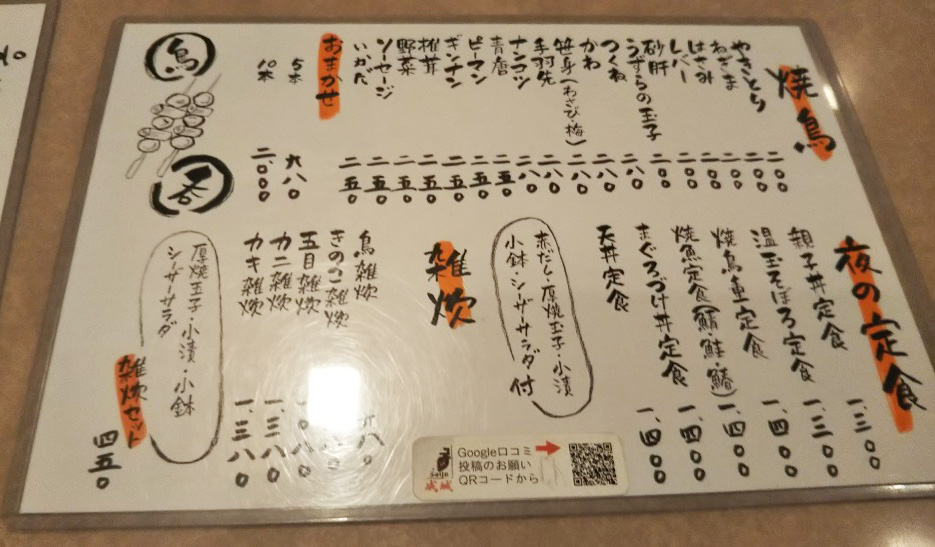 焼鳥
やきとり 二〇〇
ねぎま 二〇〇
はさみ 二〇〇
レバー 二〇〇
砂肝 二〇〇
うずらの玉子 二八〇
つくね 二八〇
かわ 二八〇
笹身(わさび・梅) 二八〇
手羽先 二八〇
ナンコツ 二八〇
青唐 二五〇
ピーマン 二五〇
ギンナン 二五〇
椎茸 二五〇
野菜 二五〇
ソーセージ 二五〇
いかだ 二五〇
おまかせ
5本 九八〇
10本 二、〇〇〇
鳥
呑
夜の定食
親子丼定食 一、三〇〇
温玉そぼろ定食 一、三〇〇
焼鳥重定食 一、四〇〇
焼魚定食(鯖・鮭・鰆) 一、四〇〇
まぐろづけ丼定食 一、四〇〇
天丼定食 一、四〇〇
赤だし・厚焼玉子・小漬
小鉢・シーザーサラダ付
雑炊
鳥雑炊 九八〇
きのこ雑炊
五目雑炊
カニ雑炊 一、三八〇
カキ雑炊 一、三八〇
厚焼玉子・小漬・小鉢
シーザーサラダ
雑炊セット 四五〇
seijo
成城
Google口コミ
投稿のお願い
QRコードから